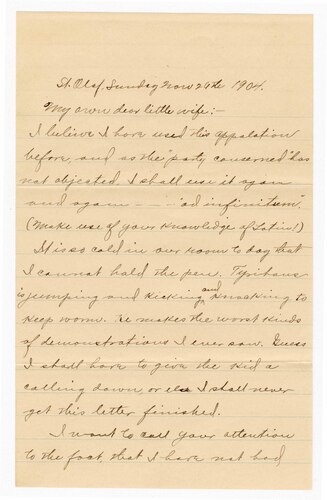 St. Olaf, Sunday Nov 20th 1904.
My own dear little wife:-
I beleive I have used this appelation
before, and as the "party concerned" has
not objected, I shall use it again
and again — — "ad infinitum".
(Make use of your knowledge of Latin!)
It is so cold in our room to day that
I cannot hold the pen.
is jumping and kicking and knocking to
keep warm. He makes the worst kinds
of demonstrations I ever saw. Guess
I shall have to give the kid a
calling down, or else I shall never
get this letter finished.
I want to call your attention
to the fact, that I have not had